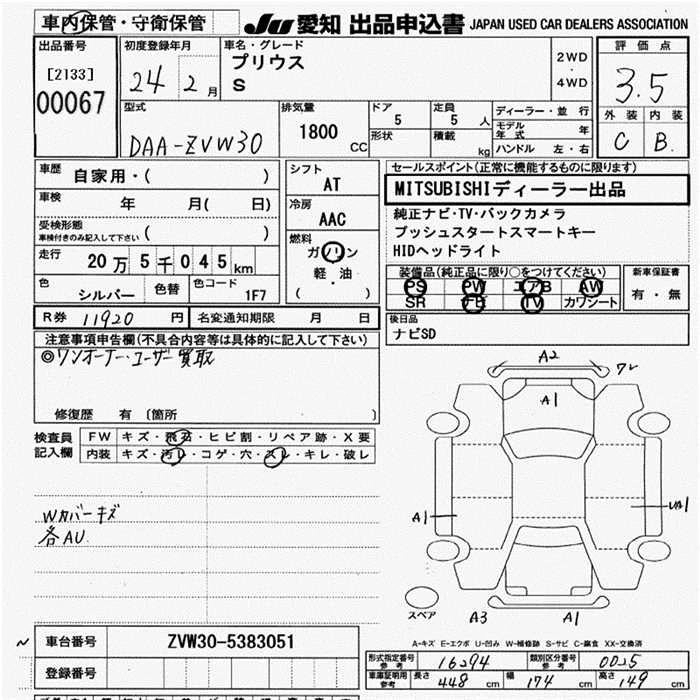 車内保管・守衛保管
JU 愛知 出品申込書 JAPAN USED CAR DEALERS ASSOCIATION
出品番号
[2133]
00067
初度登録年月
24 2 月
車名・グレード
プリウス
S
2WD
・
4WD
評価点
3.5
外装 内装
C B.
型式
DAA-ZVW30
排気量
1800 CC
ドア
5
形状
定員
5 人
積載 kg
ディーラー・並行
モデル年式 年
ハンドル 左・右
車歴
自家用・( )
車検
年 月( 日)
受検形態
車検付きのみ記入して下さい ( )
走行
20万5千045km
色
シルバー
色替
色コード
1F7
シフト
AT
冷房
AAC
燃料
ガソリン
軽・油
( )
セールスポイント(正常に機能するものに限ります)
MITSUBISHIディーラー出品
純正ナビ・TV・バックカメラ
プッシュスタートスマートキー
HIDヘッドライト
装備品(純正品に限り○をつけてください)
PS PW エアB AW
SR FB TV カワシート
新車保証書
有・無
後日品
ナビSD
R券 11920 円
名変通知期限 月 日
注意事項申告欄(不具合内容等は具体的に記入して下さい)
◎ワンオーナー・ユーザー買取
修復歴 有 〔箇所 〕
検査員
記入欄
FW キズ・飛石・ヒビ割・リペア跡・X要
内装 キズ・汚レ・コゲ・穴・スレ・キレ・破レ
Wカバーキズ
各AU
A2
ワレ
A1
A1
UA1
スペア
A3
A1
A-キズ E-エクボ U-凹み W-補修跡 S-サビ C-腐食 XX-交換済
車台番号
ZVW30-5383051
登録番号
形式指定番号
参考
16294
類別区分番号
参考
0025
車庫証明用
参考
長さ 448 cm
幅 174 cm
高さ 149 cm